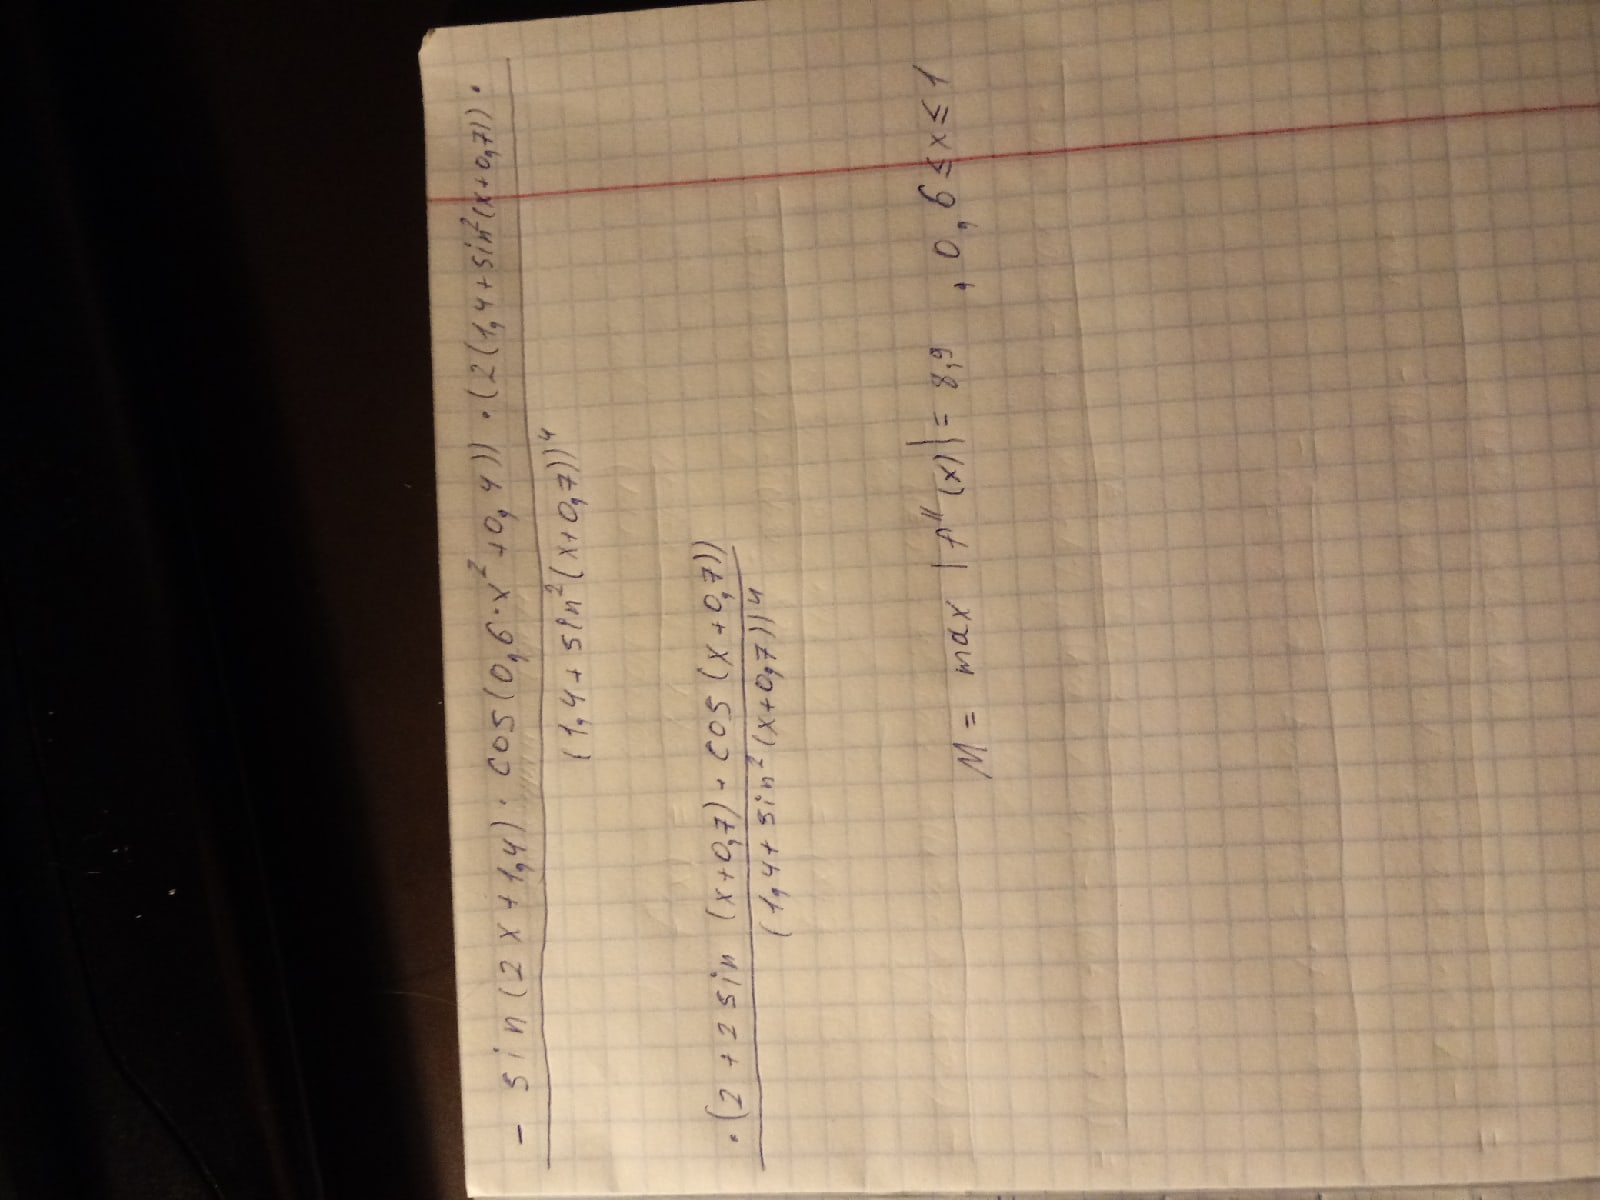 - sin(2x+1,4)·cos(0,6·x²+0,4))·(2(1,4+sin²(x+0,7))·
(1,4+sin²(x+0,7))⁴
·(2+2sin(x+0,7)+cos(x+0,7))
(1,4+sin²(x+0,7))⁴
M = max |f''(x)| = 8,9 , 0,6≤x≤1